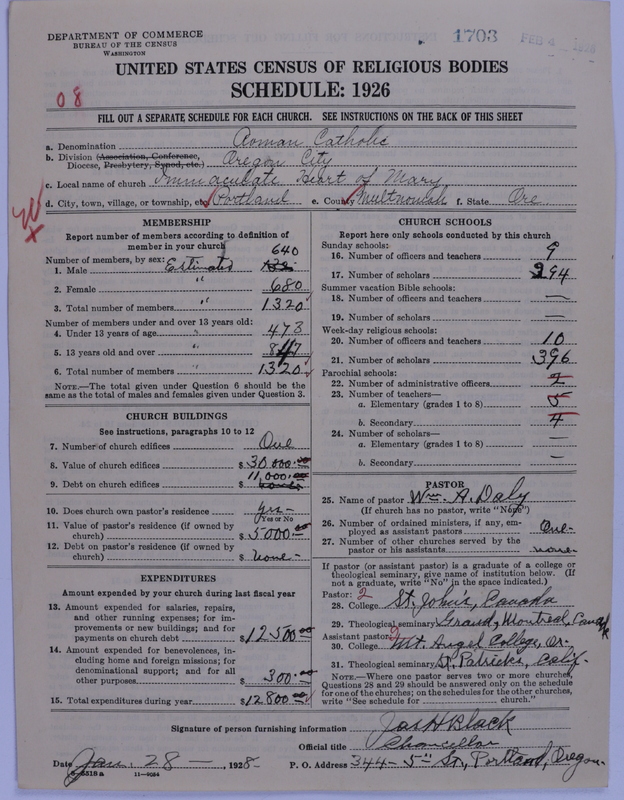 DEPARTMENT OF COMMERCE
BUREAU OF THE CENSUS
WASHINGTON
1703
FEB 4 1928
UNITED STATES CENSUS OF RELIGIOUS BODIES
SCHEDULE: 1926
08
FILL OUT A SEPARATE SCHEDULE FOR EACH CHURCH. SEE INSTRUCTIONS ON THE BACK OF THIS SHEET
a. Denomination Roman Catholic
b. Division (Association, Conference, Diocese, Presbytery, Synod, etc.) Oregon City
c. Local name of church Immaculate Heart of Mary
d. City, town, village, or township, etc. Portland e. County Multnomah f. State Ore
MEMBERSHIP
Report number of members according to definition of
member in your church
Number of members, by sex: 640
1. Male Estimated
2. Female " 680
3. Total number of members " 1320
Number of members under and over 13 years old:
4. Under 13 years of age " 473
5. 13 years old and over " 847
6. Total number of members " 1320
NOTE.—The total given under Question 6 should be the
same as the total of males and females given under Question 3.
CHURCH BUILDINGS
See instructions, paragraphs 10 to 12
7. Number of church edifices One
8. Value of church edifices $ 30,000.00
9. Debt on church edifices $ 11,000.00
10. Does church own pastor's residence Yes
(Yes or No)
11. Value of pastor's residence (if owned by
church) $ 5000.00
12. Debt on pastor's residence (if owned by
church) $ none
EXPENDITURES
Amount expended by your church during last fiscal year
13. Amount expended for salaries, repairs,
and other running expenses; for im-
provements or new buildings; and for
payments on church debt $ 12500.00
14. Amount expended for benevolences, in-
cluding home and foreign missions; for
denominational support; and for all
other purposes $ 300.00
15. Total expenditures during year $ 12800.00
CHURCH SCHOOLS
Report here only schools conducted by this church
Sunday schools:
16. Number of officers and teachers 9
17. Number of scholars 294
Summer vacation Bible schools:
18. Number of officers and teachers —
19. Number of scholars —
Week-day religious schools:
20. Number of officers and teachers 10
21. Number of scholars 396
Parochial schools:
22. Number of administrative officers 2
23. Number of teachers—
a. Elementary (grades 1 to 8) 5
b. Secondary 4
24. Number of scholars—
a. Elementary (grades 1 to 8) —
b. Secondary —
PASTOR
25. Name of pastor Wm. A. Daly
(If church has no pastor, write "None")
26. Number of ordained ministers, if any, em-
ployed as assistant pastors One
27. Number of other churches served by the
pastor or his assistants none
If pastor (or assistant pastor) is a graduate of a college or
theological seminary, give name of institution below. (If
not a graduate, write "No" in the space indicated.)
Pastor: 2
28. College St. John's, Canada
29. Theological seminary Grand, Montreal, Canada
Assistant pastor: 2
30. College Mt. Angel College, Or.
31. Theological seminary St. Patricks, Calif.
NOTE.—Where one pastor serves two or more churches,
Questions 28 and 29 should be answered only on the schedule
for one of the churches; on the schedules for the other churches,
write "See schedule for church."
Signature of person furnishing information Jas H Black
Official title Chancellor
Date Jan. 28 —, 1928. P. O. Address 344 - 5th St., Portland, Oregon.
8-5518 a 11-9084